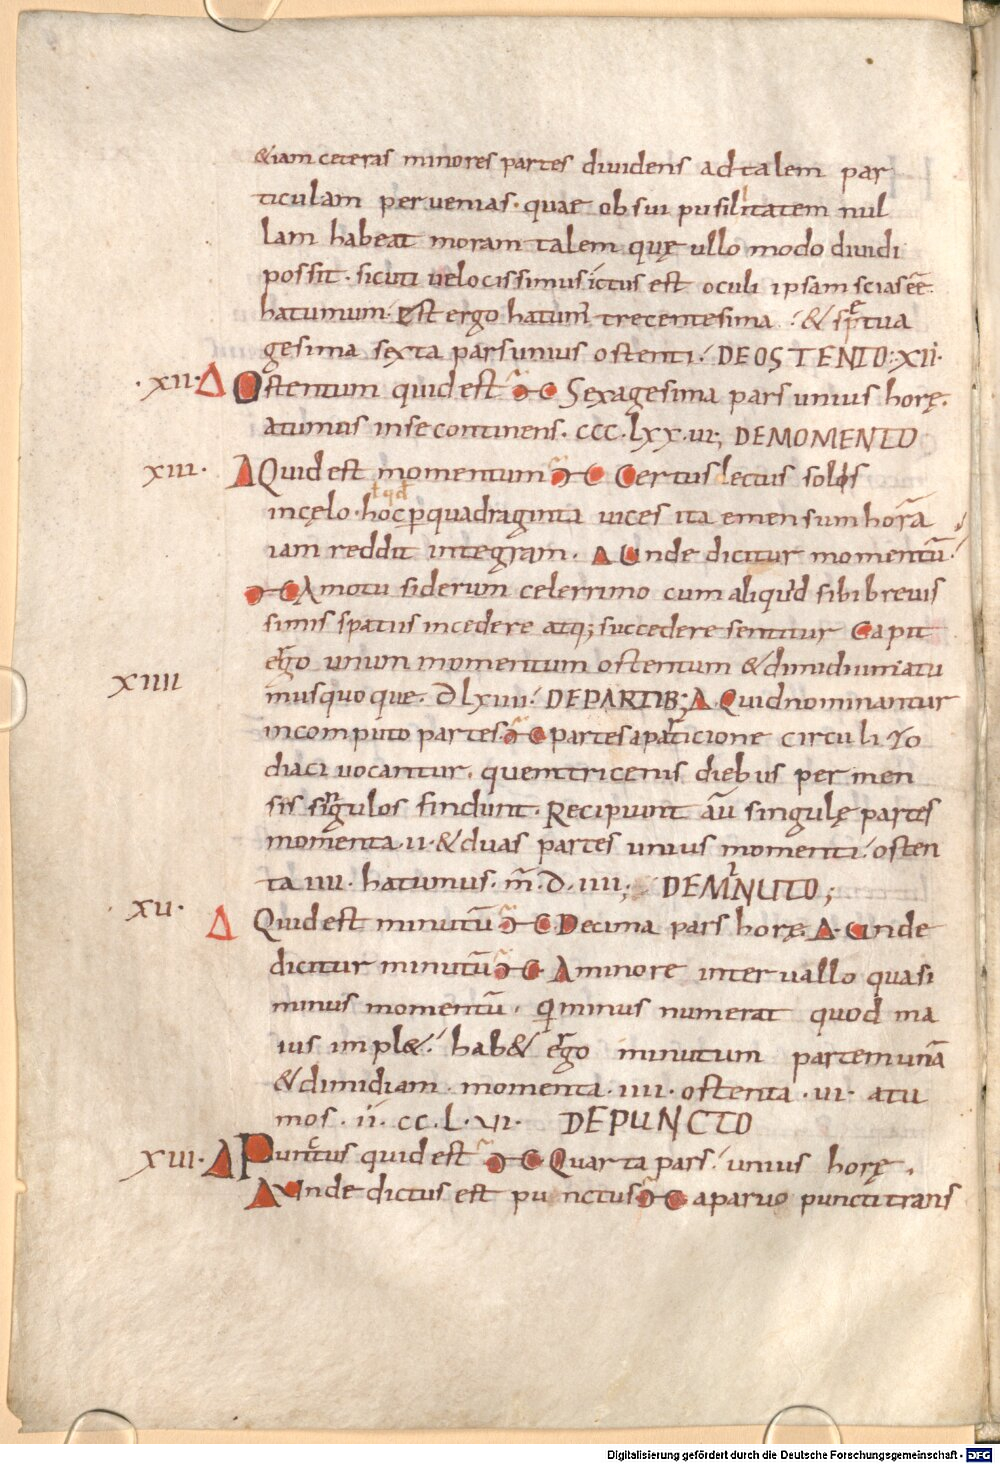 &iam ceteras minores partes dividens ad talem par
ticulam pervenias. quae ob sui pusilitatem nul
lam habeat moram talem quę ullo modo dividi
possit. sicuti velocissimus ictus est oculi ipsam scias eē
hatumum. Est ergo hatum trecentesima . & sp̄tua
gesima sexta pars unius ostenti. DE OSTENTO: XII.
.XII. Δ Ostentum quid est Sexagesima pars unius horę.
atumus inse continens. CCC. LXX. VI; DE MOMENTO
XIII. Δ Quid est momentum Certus lectus solis
incęlo. hoc p̄ quadraginta vices ita emensum horā
ł qd
iam reddit integram. Δ Unde dicitur momentū.
A motu siderum celerrimo cum aliquid sibi brevis
simis spatiis incedere atq; succedere sentitur Capit
ergo unum momentum ostentum & dimidium atu
XIIII
mus quoque. DLXIIII. DE PARTIB; Δ. Quid nominantur
in computo partes. partes a particione circuli zo
diaci vocantur. quem tricenis diebus per men
sis singulos findunt. Recipiunt aū singulę partes
momenta. II. & duas partes unius momenti. osten
ta IIII. hatumus. m̄. D. IIII; DE MINUTO;
XV. Δ Quid est minutū Decima pars horę. Δ. Unde
dicitur minutū A minore intervallo quasi
minus momentū. qi minus numerat quod ma
ius impl&. hab& ergo minutum partem unā
& dimidiam. momenta. IIII. ostenta. VI. atu
mos. II. CC. L. VI. DE PUNCTO
XVI. Δ Punctus quid est Quarta pars. unius horę.
Δ Unde dictus est punctus a parvo puncti trans
Digitalisierung gefördert durch die Deutsche Forschungsgemeinschaft - DFG